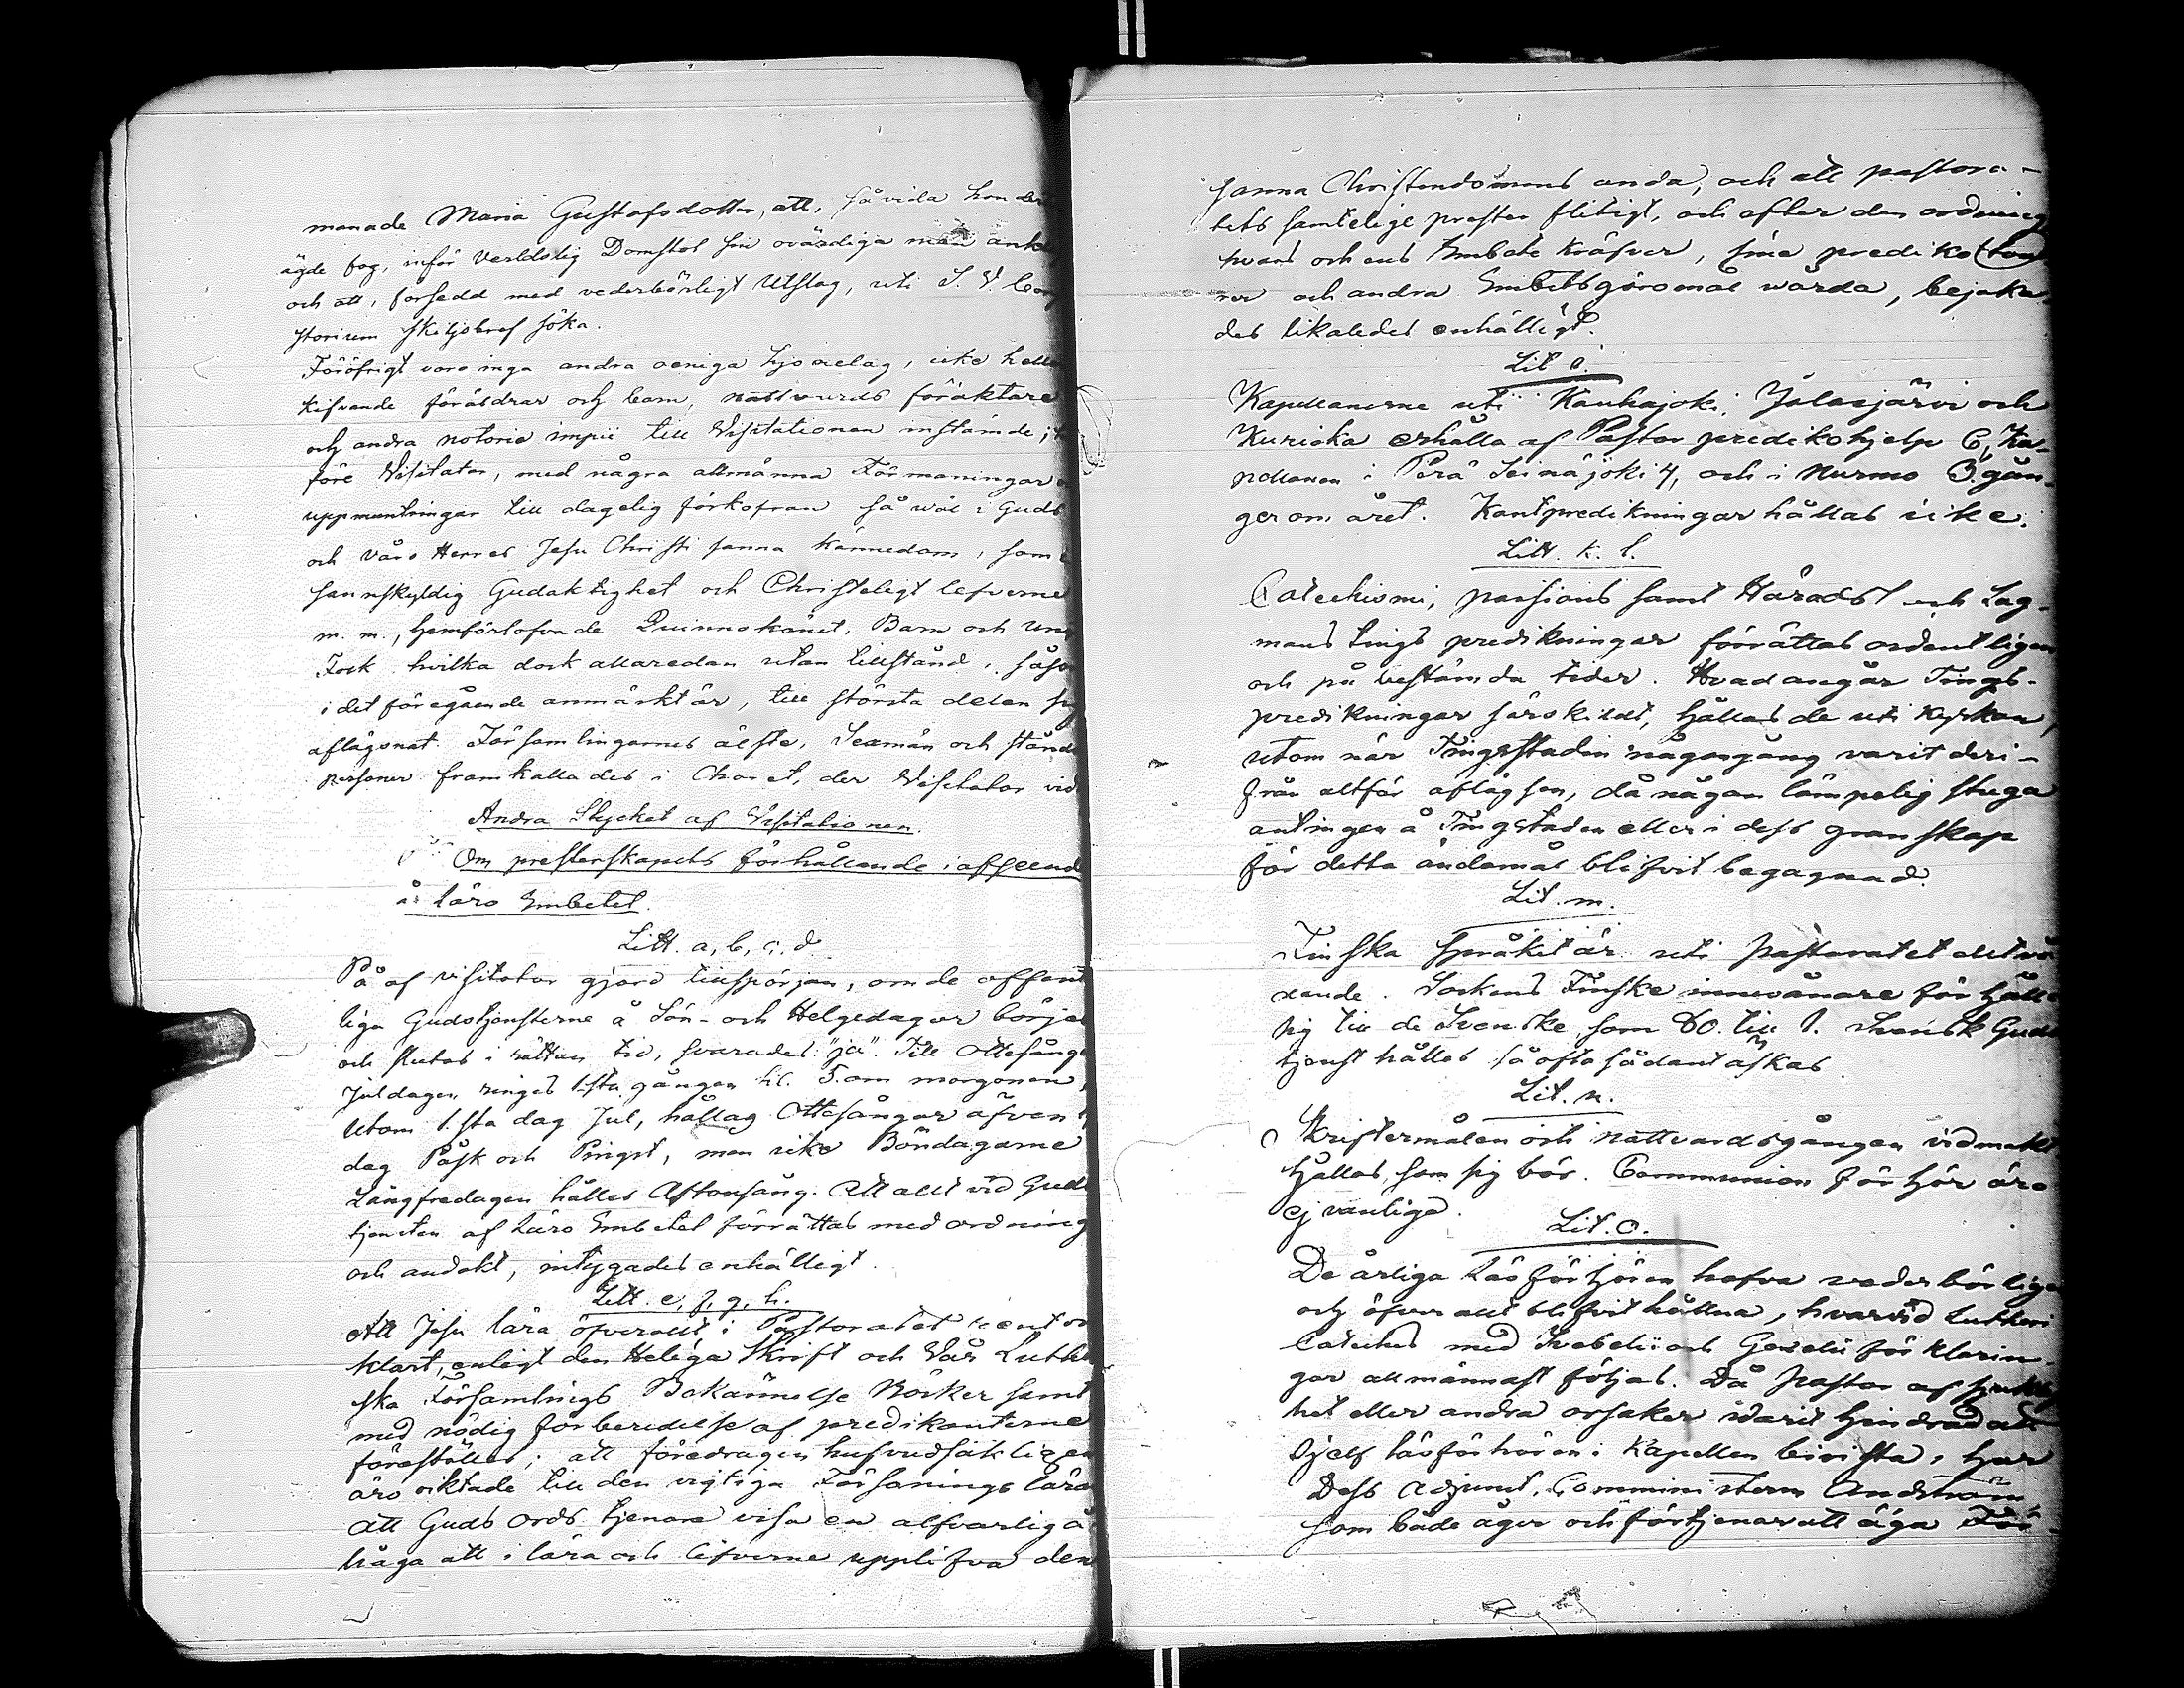 manade Maria Gustafsdotter, att, såvida hon der
ägde fog, inför Verldslig Domstol sin ovärdiga man anka
och att, försedd med vederbörligt Utslag, uti S. V. Con
storium Skiljobref söka.
Föröfrigt voro inga andra oeniga hjonelag, icke helle
kifvande föräldrar och barn, nattvards föraktare
och andra notorie impii till Visitationen instämde;
före Visitator, med några allmänna Förmaningar o
uppmuntringar till dagelig förkofran så wäl i Guds
och våro Herres Jesu Christi sanna kännedom, som i
sannskyldig Gudaktighet och Christeligt lefverne
m. m., hemförlofvade Quinnokönet, Barn och Ung
Folk hvilka dock allaredan utan tillstånd, såso
i det föregående anmärkt är, till största delen sig
aflägsnat. Församlingarnes älste, Sexmän och stånds
personer framkallades i Choret, der Visitator vid
Andra Stycket af Visitationen.
Om presterskapets förhållande i afseende
å Läro Embetet.
Litt. a, b, c, d.
På af visitator gjord tillspörjan, om de offent
liga Gudstjensterne å Sön- och Helgedagar börjas
och slutas i rättan tid, svarades: "ja". Till Ottesånge
Juldagen ringes 1sta gången kl. 5. om morgonen,
Utom 1.sta dag Jul, hållas Ottesångar äfven 1
dag Påsk och Pingst, men icke Böndagarne
Långfredagen hålles Aftonsång. Att allt vid Guds
tjensten af Läro Embetet förrättas med ordning
och andakt, intygades enhälligt.
Litt. e, f, g, h.
Att Jesu lära öfverallt i Pastoratet rent oc
klart, enligt den Heliga Skrift och Vår Luther
ska Församlings Bekännelse Böcker samt
med nödig förberedelse af predikanterne
föreställes; att föredragen hufvudsakligen
äro riktade till den vigtiga Försonings lära
att Guds Ords tjenare visa en alfvarlig å
håga att i lära och lefverne upplifva den
sanna Christendomens anda, och att pastora-
tets samtelige prester flitigt, och efter den ordning
hvars och ens Embete kräfver, sine prediko ton
rer och andra Embetsgöromål wårda, bejaka
des likaledes enhälligt.
Lit i.
Kapellanerne uti Kauhajoki, Jalasjärvi och
Kurikka erhålla af Pastor predikohjelp 6, Ka-
pellanen i Perä Seinäjoki 4, och i Nurmo 3. gån-
ger om året. Kontpredikningar hållas icke.
Litt. k. l.
Catechismi, passions samt Härads och Lag-
mans tings predikningar förrättas ordentligen
och på bestämda tider. Hvad angår Tings-
predikningar särskildt, hållas de uti kyrkan,
utom när Tingsstaden någongång varit deri-
från altför aflägsen, då någon lämpelig stuga
antingen å Tingstaden eller i dess granskap
för detta ändamål blifvit begagnad.
Lit. m.
Finska Språket är uti Pastoratet det rå
dande. Sockens Finske innevånare förhålla
sig till de Svenske, som 80. till 1. Svensk Guds
tjenst hålles så ofta sådant äskas.
Lit. n.
Skriftermålen och nattvardsgången vidmakt
hållas, som sig bör. Communion förhör äro
ej vanliga.
Lit. o.
De årliga Läsförhören hafva vederbörlige
och öfver allt blifvit hållna, hvarvid Lutheri
Cateches med Svebelii och Gezelii förklarin-
gar allmännast följas. Då Pastor af sjuklig
het eller andra orsaker varit hindrad att
Sjelf läsförhören i Kapellen bevista, har
Dess Adjunct, Comministern Andström
som både äger och förtjenar att äga För-